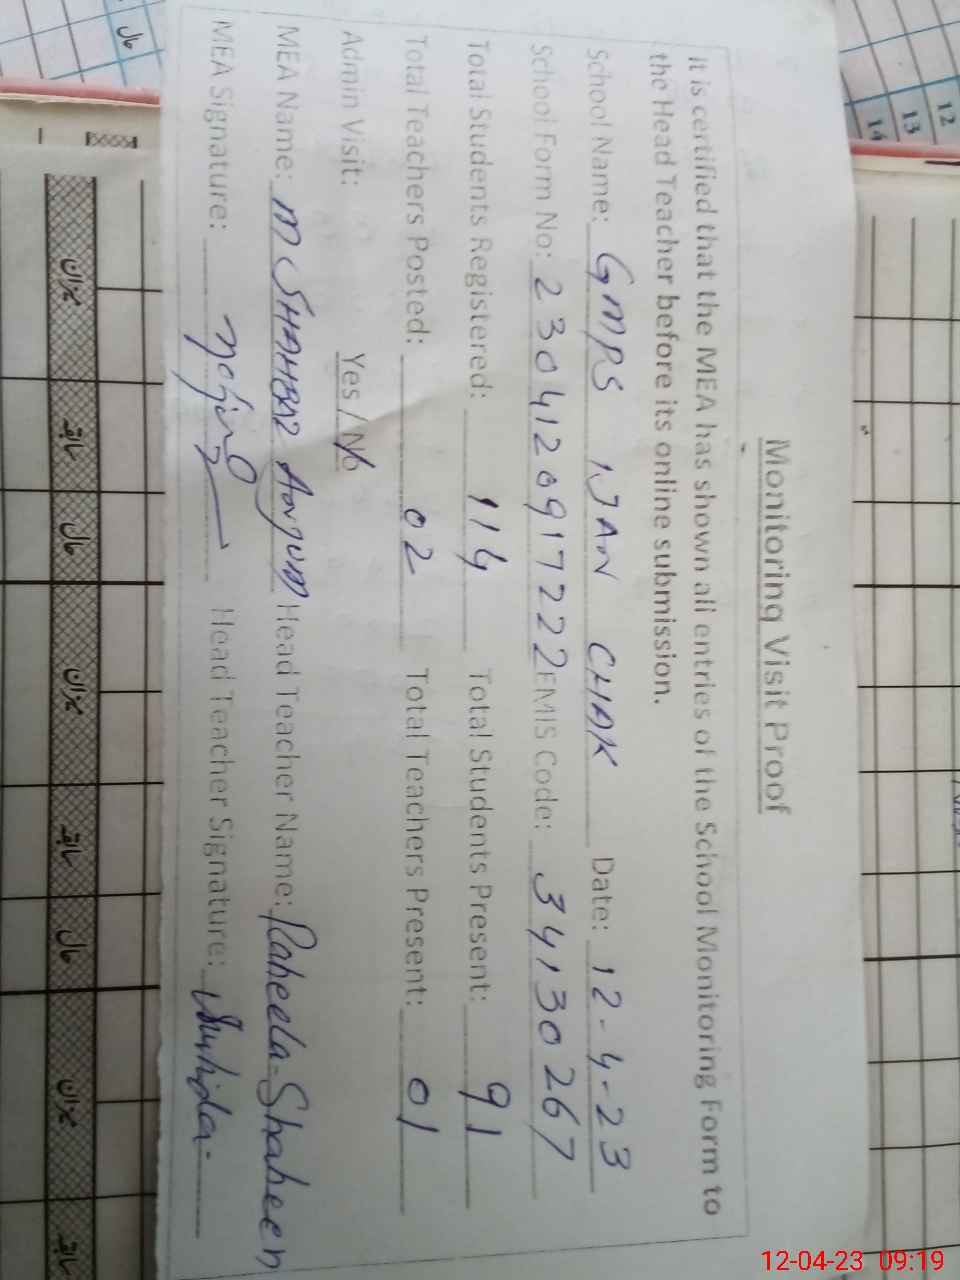 Monitoring Visit Proof
It is certified that the MEA has shown all entries of the School Monitoring Form to
the Head Teacher before its online submission.
School Name: GMPS 1.JAN CHAK Date: 12-4-23
School Form No: 2304120917222 EMIS Code: 34130267
Total Students Registered: 114 Total Students Present: 91
Total Teachers Posted: 02 Total Teachers Present: 01
Admin Visit: Yes / No
MEA Name: M SHAHBAZ Anjum Head Teacher Name: Raheela Shaheen
MEA Signature: Head Teacher Signature:
12
13
14
میزان
سابقہ
حال
میزان
سابقہ
حال
میزان
سابقہ
حال
12-04-23 09:19